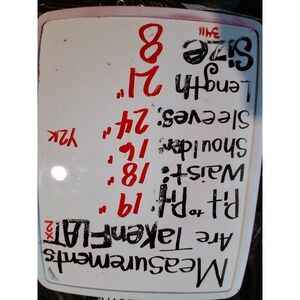 Measurements
Are Taken FLAT 2X
Pit to Pit 19"
Waist: 18"
Shoulder 16"
Y2K
Sleeves: 24"
Length 21"
Size 8
3411